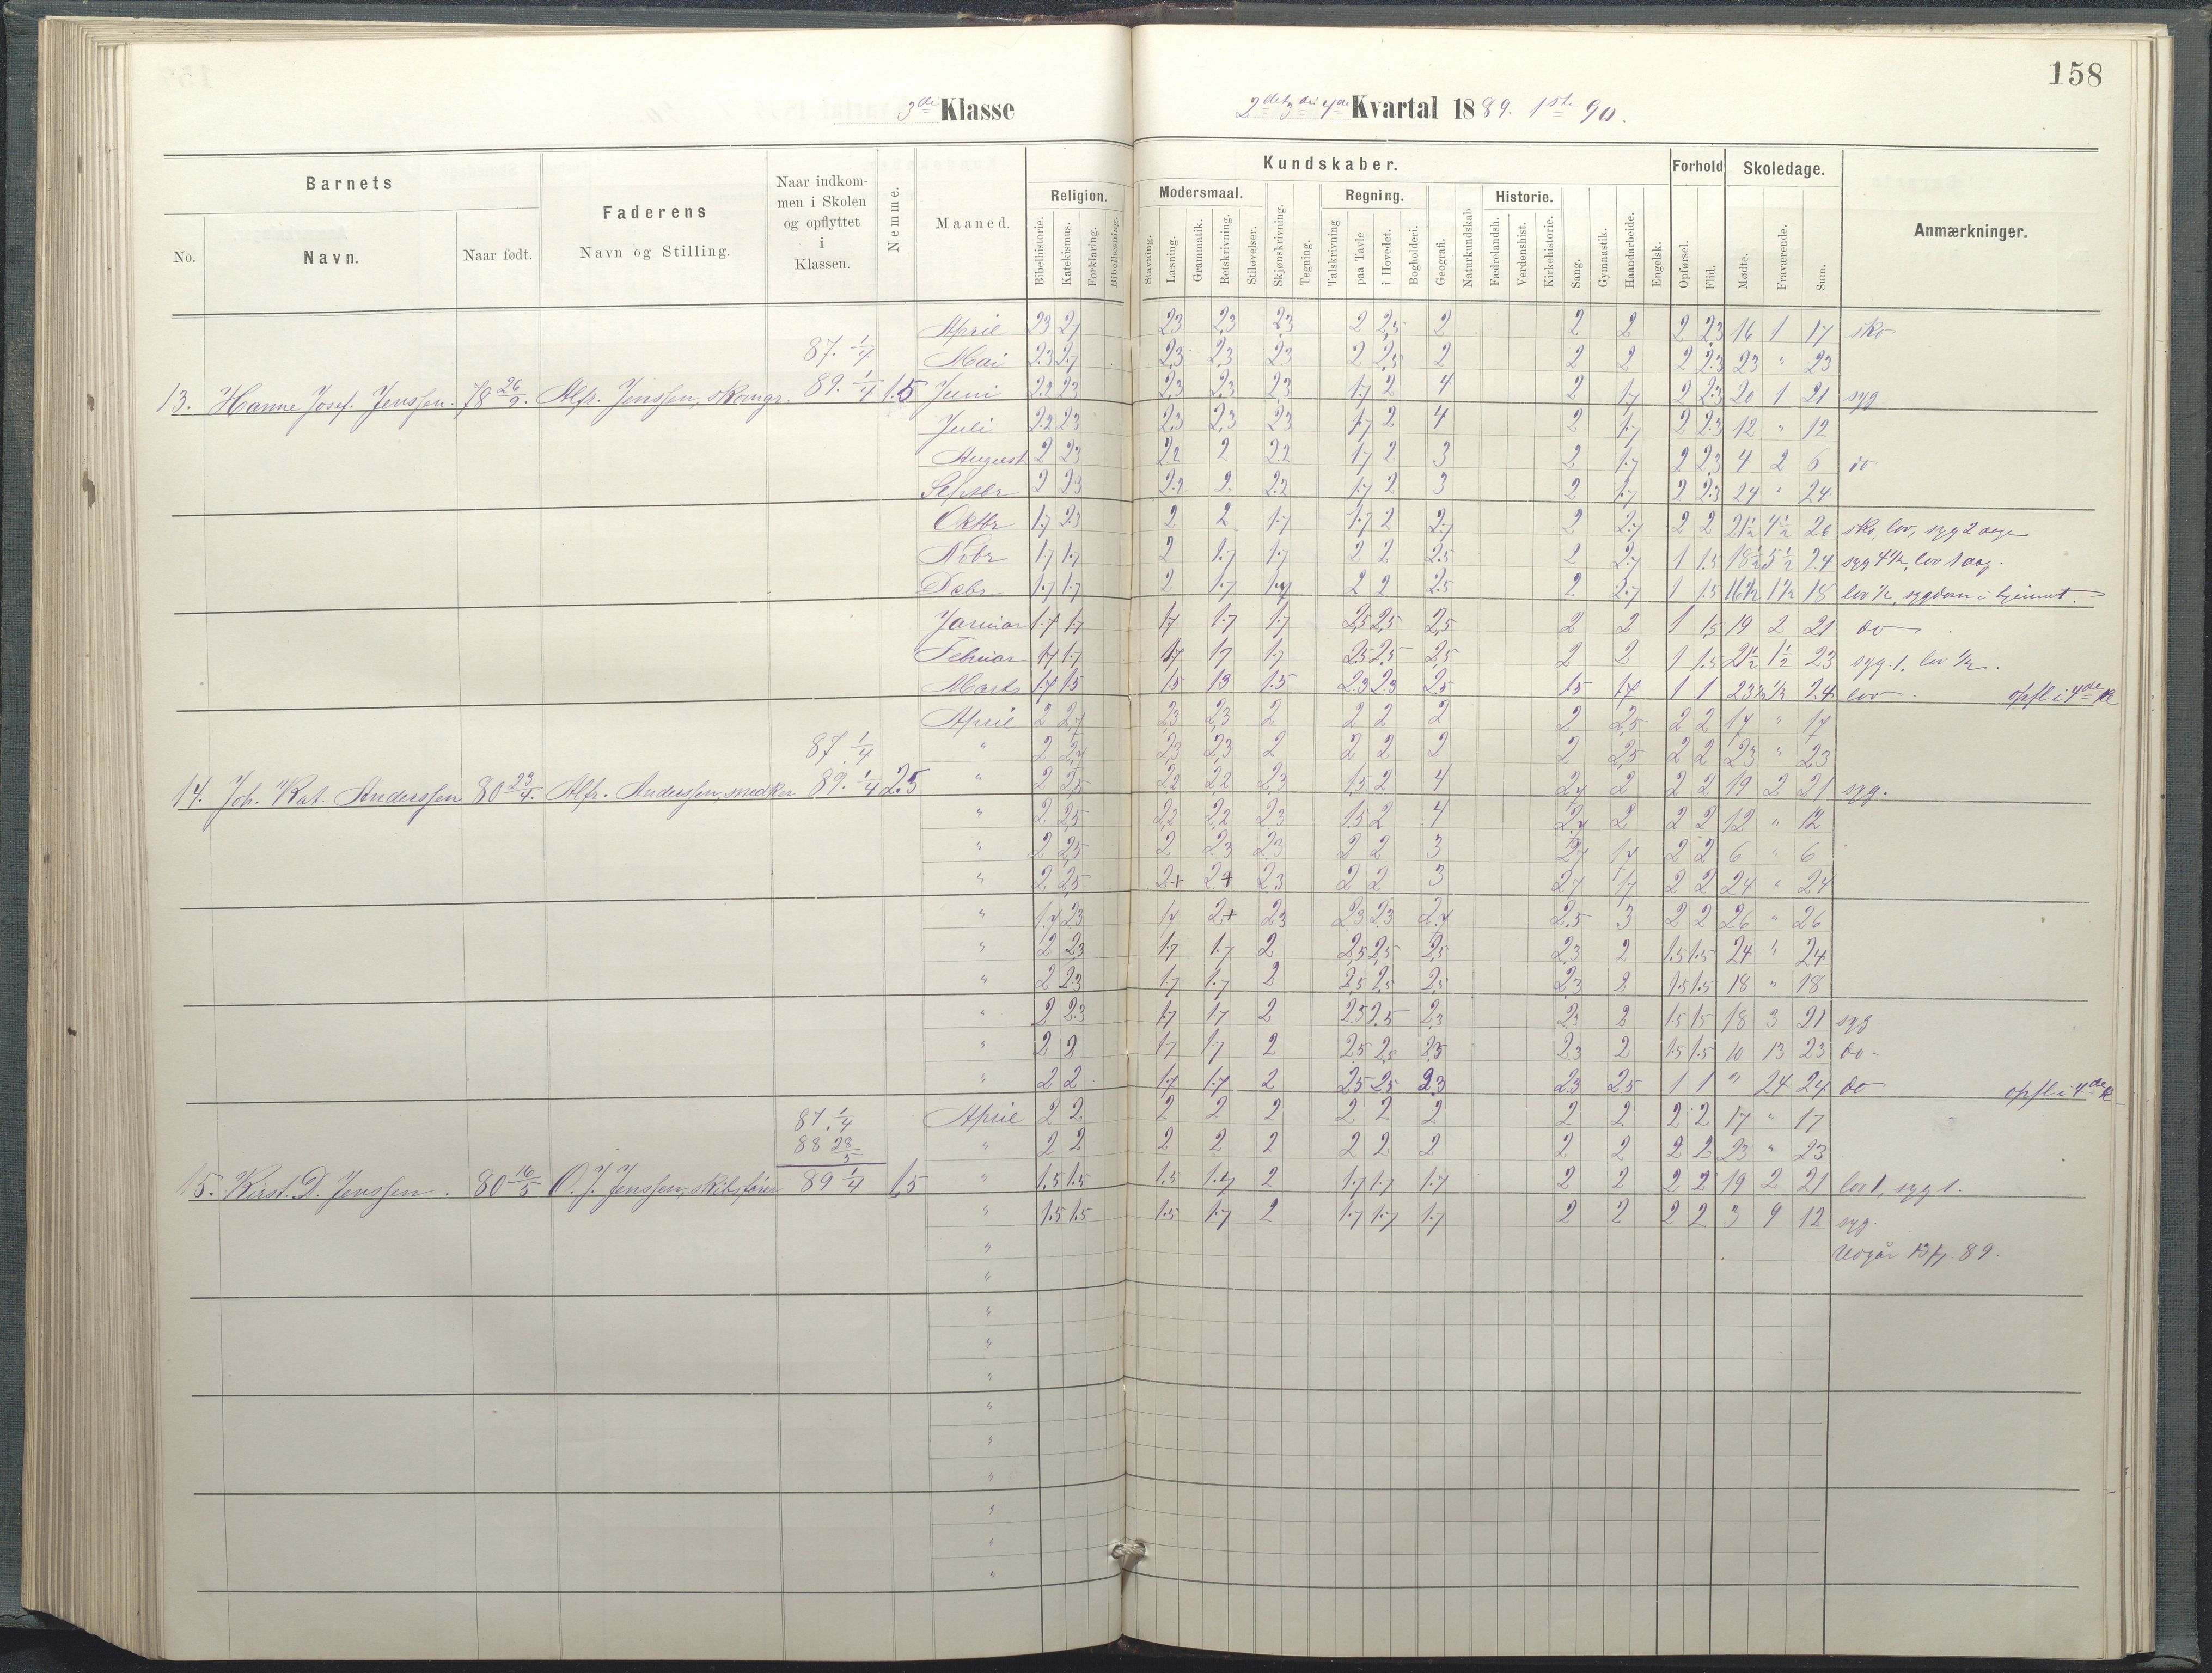 158
3die Klasse
2det 3die 4de Kvartal 1889. 1ste 90.
Barnets
Faderens
Navn og Stilling.
Naar indkommen i Skolen og opflyttet i Klassen.
Nemme.
Maaned.
Kundskaber.
Forhold
Skoledage.
Anmærkninger.
No.
Navn.
Naar født.
Religion.
Modersmaal.
Regning.
Historie.
Bibelhistorie. Katekismus. Forklaring. Bibellæsning. Stavning. Læsning. Grammatik. Retskrivning. Stiløvelser. Skjønskrivning. Tegning. Talskrivning paa Tavle i Hovedet. Bogholderi. Geografi. Naturkundskab Fædrelandsh. Verdenshist. Kirkehistorie. Sang. Gymnastik. Haandarbeide. Engelsk. Opførsel. Flid. Mødte. Fraværende. Sum.
April 2.3 2.7 2.3 2.3 2.3 2 2.5 2 2 2 2 2.3 16 1 17 sko
87. 1/4 Mai 2.3 2.7 2.3 2.3 2.3 2 2.5 2 2 2 2 2.3 23 " 23
13. Hanne Josef. Jenssen. 78 26/9. Alfr. Jenssen, skomgr. 89. 1/4 1.5 Juni 2.2 2.3 2.3 2.3 2.3 1.7 2 4 2 1.7 2 2.3 20 1 21 syg
Juli 2.2 2.3 2.3 2.3 2.3 1.7 2 4 2 1.7 2 2.3 12 " 12
August 2 2.3 2.2 2 2.2 1.7 2 3 2 1.7 2 2.3 4 2 6 do
Septbr 2 2.3 2.2 2 2.2 1.7 2 3 2 1.7 2 2.3 24 " 24
Oktbr 1.7 2.3 2 2 1.7 1.7 2 2.7 2 2.7 2 2 21 1/2 4 1/2 26 sko, lov, syg 2 dage
Novbr 1.7 1.7 2 1.7 1.7 2 2 2.5 2 2.7 1 1.5 18 1/2 5 1/2 24 syg 4 1/2, lov 1 dag.
Decbr 1.7 1.7 2 1.7 1.7 2 2 2.5 2 2.7 1 1.5 16 1/2 1 1/2 18 lov 1/2, sygdom i hjemmet.
Januar 1.7 1.7 1.7 1.7 1.7 2.5 2.5 2.5 2 2 1 1.5 19 2 21 do
Februar 1.7 1.7 1.7 1.7 1.7 2.5 2.5 2.5 2 2 1 1.5 21 1/2 1 1/2 23 syg. 1. lov 1/2.
Marts 1.7 1.5 1.5 1.3 1.5 2.3 2.3 2.5 1.5 1.7 1 1 23 1/2 1/2 24 lov. opfl i 4de Kl
April 2 2.7 2.3 2.3 2 2 2 2 2 2.5 2 2 17 " 17
87. 1/4 " 2 2.7 2.3 2.3 2 2 2 2 2 2.5 2 2 23 " 23
14. Joh. Kat. Anderssen 80 23/4. Alfr. Anderssen, snedker 89. 1/4 2.5 " 2 2.5 2.2 2.2 2.3 1.5 2 4 2.7 2 2 2 19 2 21 syg.
" 2 2.5 2.2 2.2 2.3 1.5 2 4 2.7 2 2 2 12 " 12
" 2 2.5 2 2.3 2.3 2 2 3 2.7 1.7 2 2 6 " 6
" 2 2.5 2+ 2+ 2.3 2 2 3 2.7 1.7 2 2 24 " 24
" 1.7 2.3 1.7 2+ 2.3 2.3 2.3 2.7 2.5 3 2 2 26 " 26
" 2 2.3 1.7 1.7 2 2.5 2.5 2.5 2.3 2 1.5 1.5 24 " 24
" 2 2.3 1.7 1.7 2 2.5 2.5 2.5 2.3 2 1.5 1.5 18 " 18
" 2 2.3 1.7 1.7 2 2.5 2.5 2.3 2.3 2 1.5 1.5 18 3 21 syg
" 2 2 1.7 1.7 2 2.5 2.5 2.5 2.3 2 1.5 1.5 10 13 23 do
" 2 2 1.7 1.7 2 2.5 2.5 2.3 2.3 2.5 1 1 " 24 24 do opfl i 4de Kl
87. 1/4 April 2 2 2 2 2 2 2 2 2 2 2 2 17 " 17
88 28/5 " 2 2 2 2 2 2 2 2 2 2 2 2 23 " 23
15. Kirst. D. Jenssen. 80 16/5 O. J. Jenssen, skibsfører 89 1/4 1.5 " 1.5 1.5 1.5 1.7 2 1.7 1.7 1.7 2 2 2 2 19 2 21 lov 1, syg 1.
" 1.5 1.5 1.5 1.7 2 1.7 1.7 1.7 2 2 2 2 3 9 12 syg.
" Udgår 89.
"
"
"
"
"
"
"
"
"
"